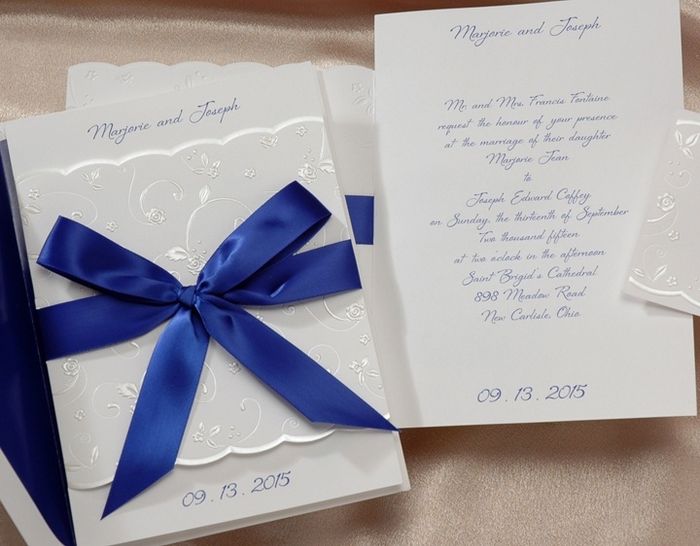 Marjorie and Joseph
09 . 13 . 2015
Marjorie and Joseph
Mr. and Mrs. Francis Fontaine
request the honour of your presence
at the marriage of their daughter
Marjorie Jean
to
Joseph Edward Caffey
on Sunday, the thirteenth of September
Two thousand fifteen
at two o'clock in the afternoon
Saint Brigid's Cathedral
898 Meadow Road
New Carlisle, Ohio
09 . 13 . 2015